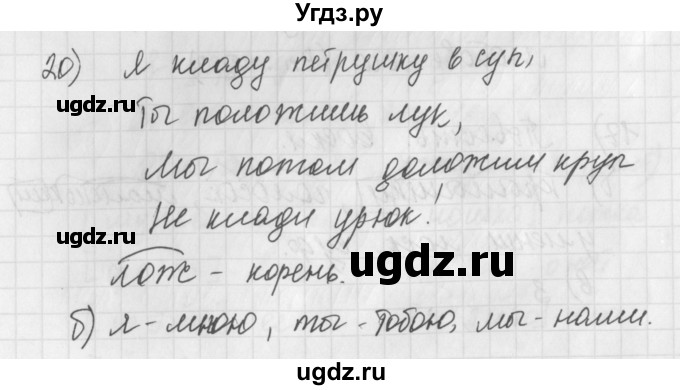 Угдз.ру
20) Я кладу петрушку в суп,
ugdz.ru ugdz.ru
Ты положишь лук,
Мы потом доложим круп
Не клади урюк!
ugdz.ru
лож - корень.
ugdz.ru
б) я - мною, ты - тобою, мы - нами.
ugdz.ru ugdz.ru